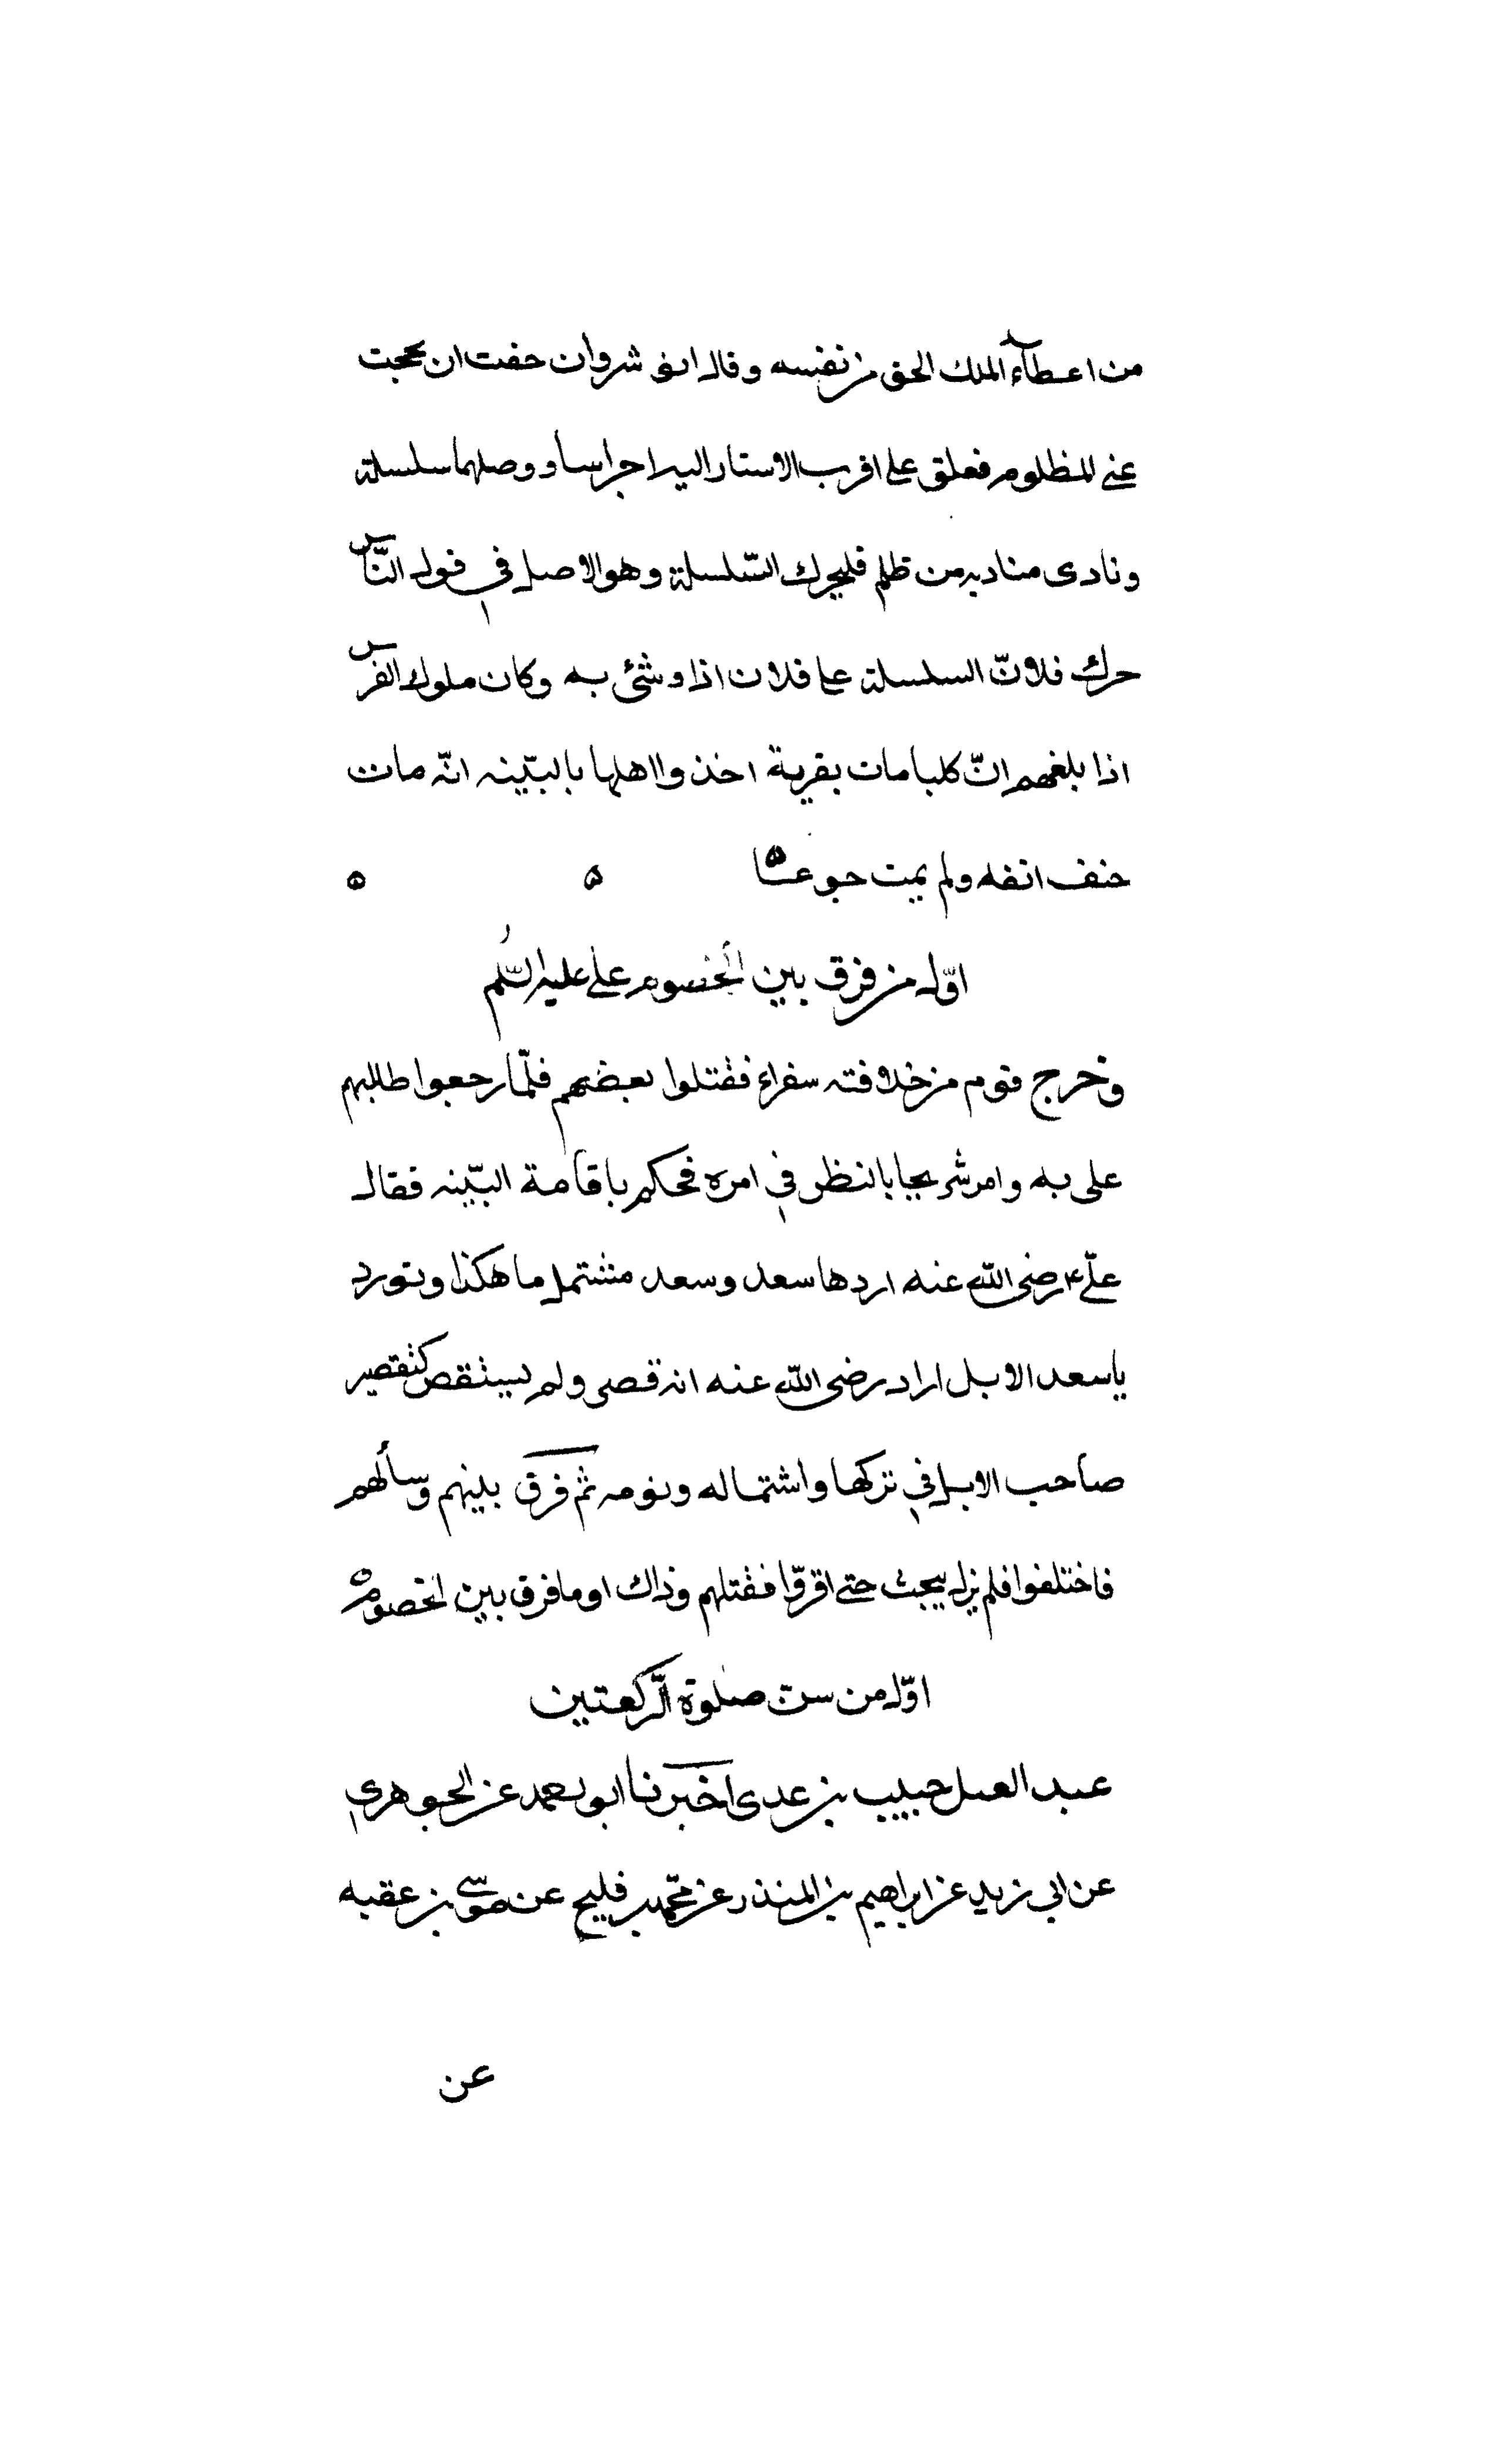 من اعطآء الملك الحق من نفسه وقال انو شروان خفت ان يحجبت
عنى المظلوم فعلق على اقرب الاستار اليه اجراسا ووصلهما سلسلة
ونادى مناديه من ظلم فليحرك السّلسلة وهو الاصل فى قول النّاس
حرك فلانّ السلسلة على فلان اذا وشئ به وكان ملوك الفرس
اذا بلغهم انّ كلبا مات بقرية اخذوا اهلها بالبيّنه انّه مات
حتف انفه ولم يمت جوعا ه ه ه
اوّل من فرق بين الخصوم على عليه السّلم
وخرج قوم من خلافته سفراء فقتلوا بعضهم فلمّا رجعوا طالبهم
على به وامر شريحا بالنظر فى امره فحكم باقامة البيّنه فقال
علىّ رضى الله عنه اردها سعد وسعد مشتمل ما هكذا وتورد
يا سعد الابل اراد رضى الله عنه انه قصى ولم يستقص كتقصير
صاحب الابل فى تركها واشتماله ونومه ثم فرق بينهم وسألهم
فاختلفوا فلم يزل يبحث حتى اقرّوا فقتلهم وذاك اوما فرق بين الخصوم
اوّل من سنّ صلوة الرّكعتين
عبد العسل حبيب بن عدى اخبرنا ابو احمد عن الجوهرى
عن ابى زيد عن ابراهيم بن المنذر عن محمّد بن فليح عن موسى بن عقبه
عن